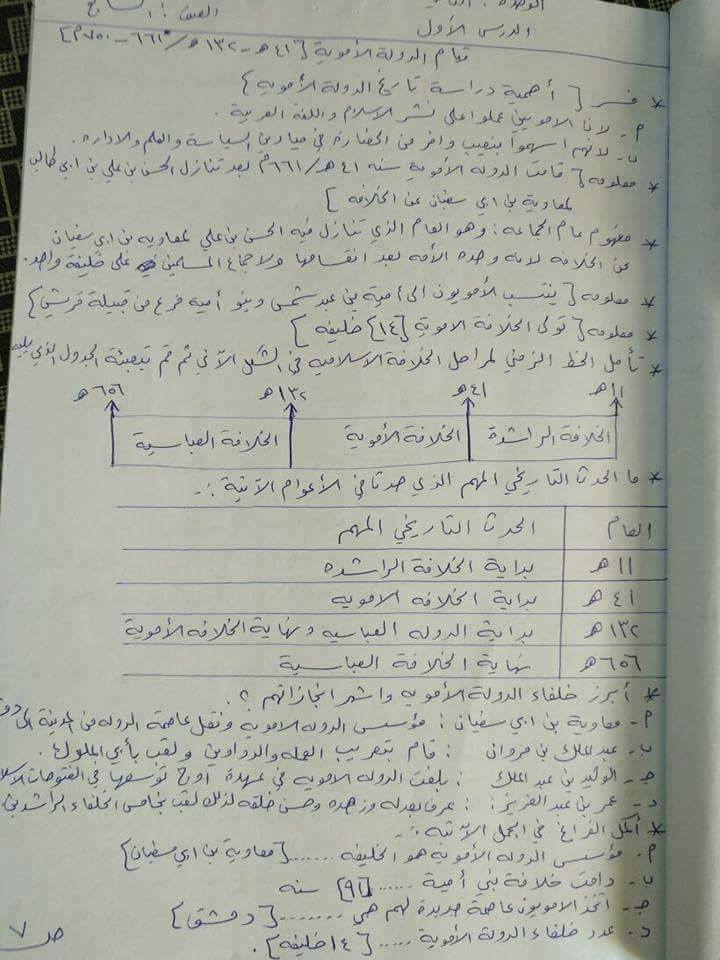 الوحدة: الثانية
الصف: السابع
الدرس الأول
قيام الدولة الأموية [٤١هـ - ١٣٢هـ / ٦٦١ - ٧٥٠م]
* فسر [أهمية دراسة تاريخ الدولة الأموية]
أ- لأنا الامويين عملوا على نشر الاسلام واللغة العربية.
ب- لأنهم اسهموا بنصيب وافر من الحضارة في ميادين السياسة والعلم والادارة.
* معلومه [قامت الدولة الأموية سنه ٤١هـ/٦٦١م بعد تنازل الحسن بن علي بن ابي طالب
لمعاوية بن ابي سفيان عن الخلافه]
* مفهوم عام الجماعه: وهو العام الذي تنازل فيه الحسن بن علي لمعاويه بن ابي سفيان
عن الخلافه لانه وحده الأمه بعد انقسامها ولاجماع المسلمين على خليفة واحد.
* معلومه [ينتسب الأمويون الى أمية بن عبد شمس وبنو أميه فرع من قبيلة قريش]
* معلومه [تولى الخلافة الاموية [١٤] خليفه]
* تأمل الخط الزمني لمراحل الخلافة الاسلاميه في الشكل الآتي ثم قم بتعبئة الجدول الذي يليه
١١هـ ٤١هـ ١٣٢هـ ٦٥٦هـ
الخلافة الراشدة الخلافة الأموية الخلافة العباسية
* ما الحدث التاريخي المهم الذي حدث في الأعوام الآتية:-
العام الحدث التاريخي المهم
١١هـ بداية الخلافة الراشده
٤١هـ بداية الخلافه الامويه
١٣٢هـ بداية الدوله العباسيه ونهاية الخلافه الأموية
٦٥٦هـ نهاية الخلافة العباسية
* أبرز خلفاء الدولة الأمويه واشهر انجازاتهم؟
أ- معاوية بن ابي سفيان: مؤسس الدوله الامويه ونقل عاصمة الدوله من المدينة الى
ب- عبدالملك بن مروان: قام بتعريب العمله والدواوين ولقب بأبي الملوك.
ج- الوليد بن عبد الملك: بلغت الدوله الامويه في عهدة أوج توسعها في الفتوحات
د- عمر بن عبد العزيز: عرف بعدله وزهده وحسن خلقه لذلك لقب بخامس الخلفاء الراشدين
* أكمل الفراغ في الجمل الآتيه:-
أ- مؤسس الدوله الأمويه هو الخليفه ...... [معاوية بن ابي سفيان]
ب- دامت خلافة بني أمية ..... [٩١] سنه
ج- اتخذ الامويون عاصمة جديدة لهم هي ....... [دمشق]
د- عدد خلفاء الدولة الأموية ..... [١٤ خليفه].
ص ٧